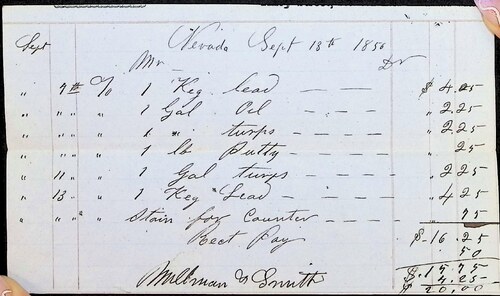 Sept Nevada Sept 13th 1856
Mr Dr
" 7th % 1 Keg lead — — — $ 4.25
" " " " 1 Gal Oil — — — " 2.25
" " " 1 " turps — — — " 2.25
" " " 1 lb Putty — — — " 25
" 11 " 1 Gal turps — — — " 2 25
" 13 " 1 Keg Lead — — — " 4 25
" " " " Stain for Counter — — 75
Rect Pay $ 16.25
50
$ 15.75
4.25
$ 20.00
& Smith